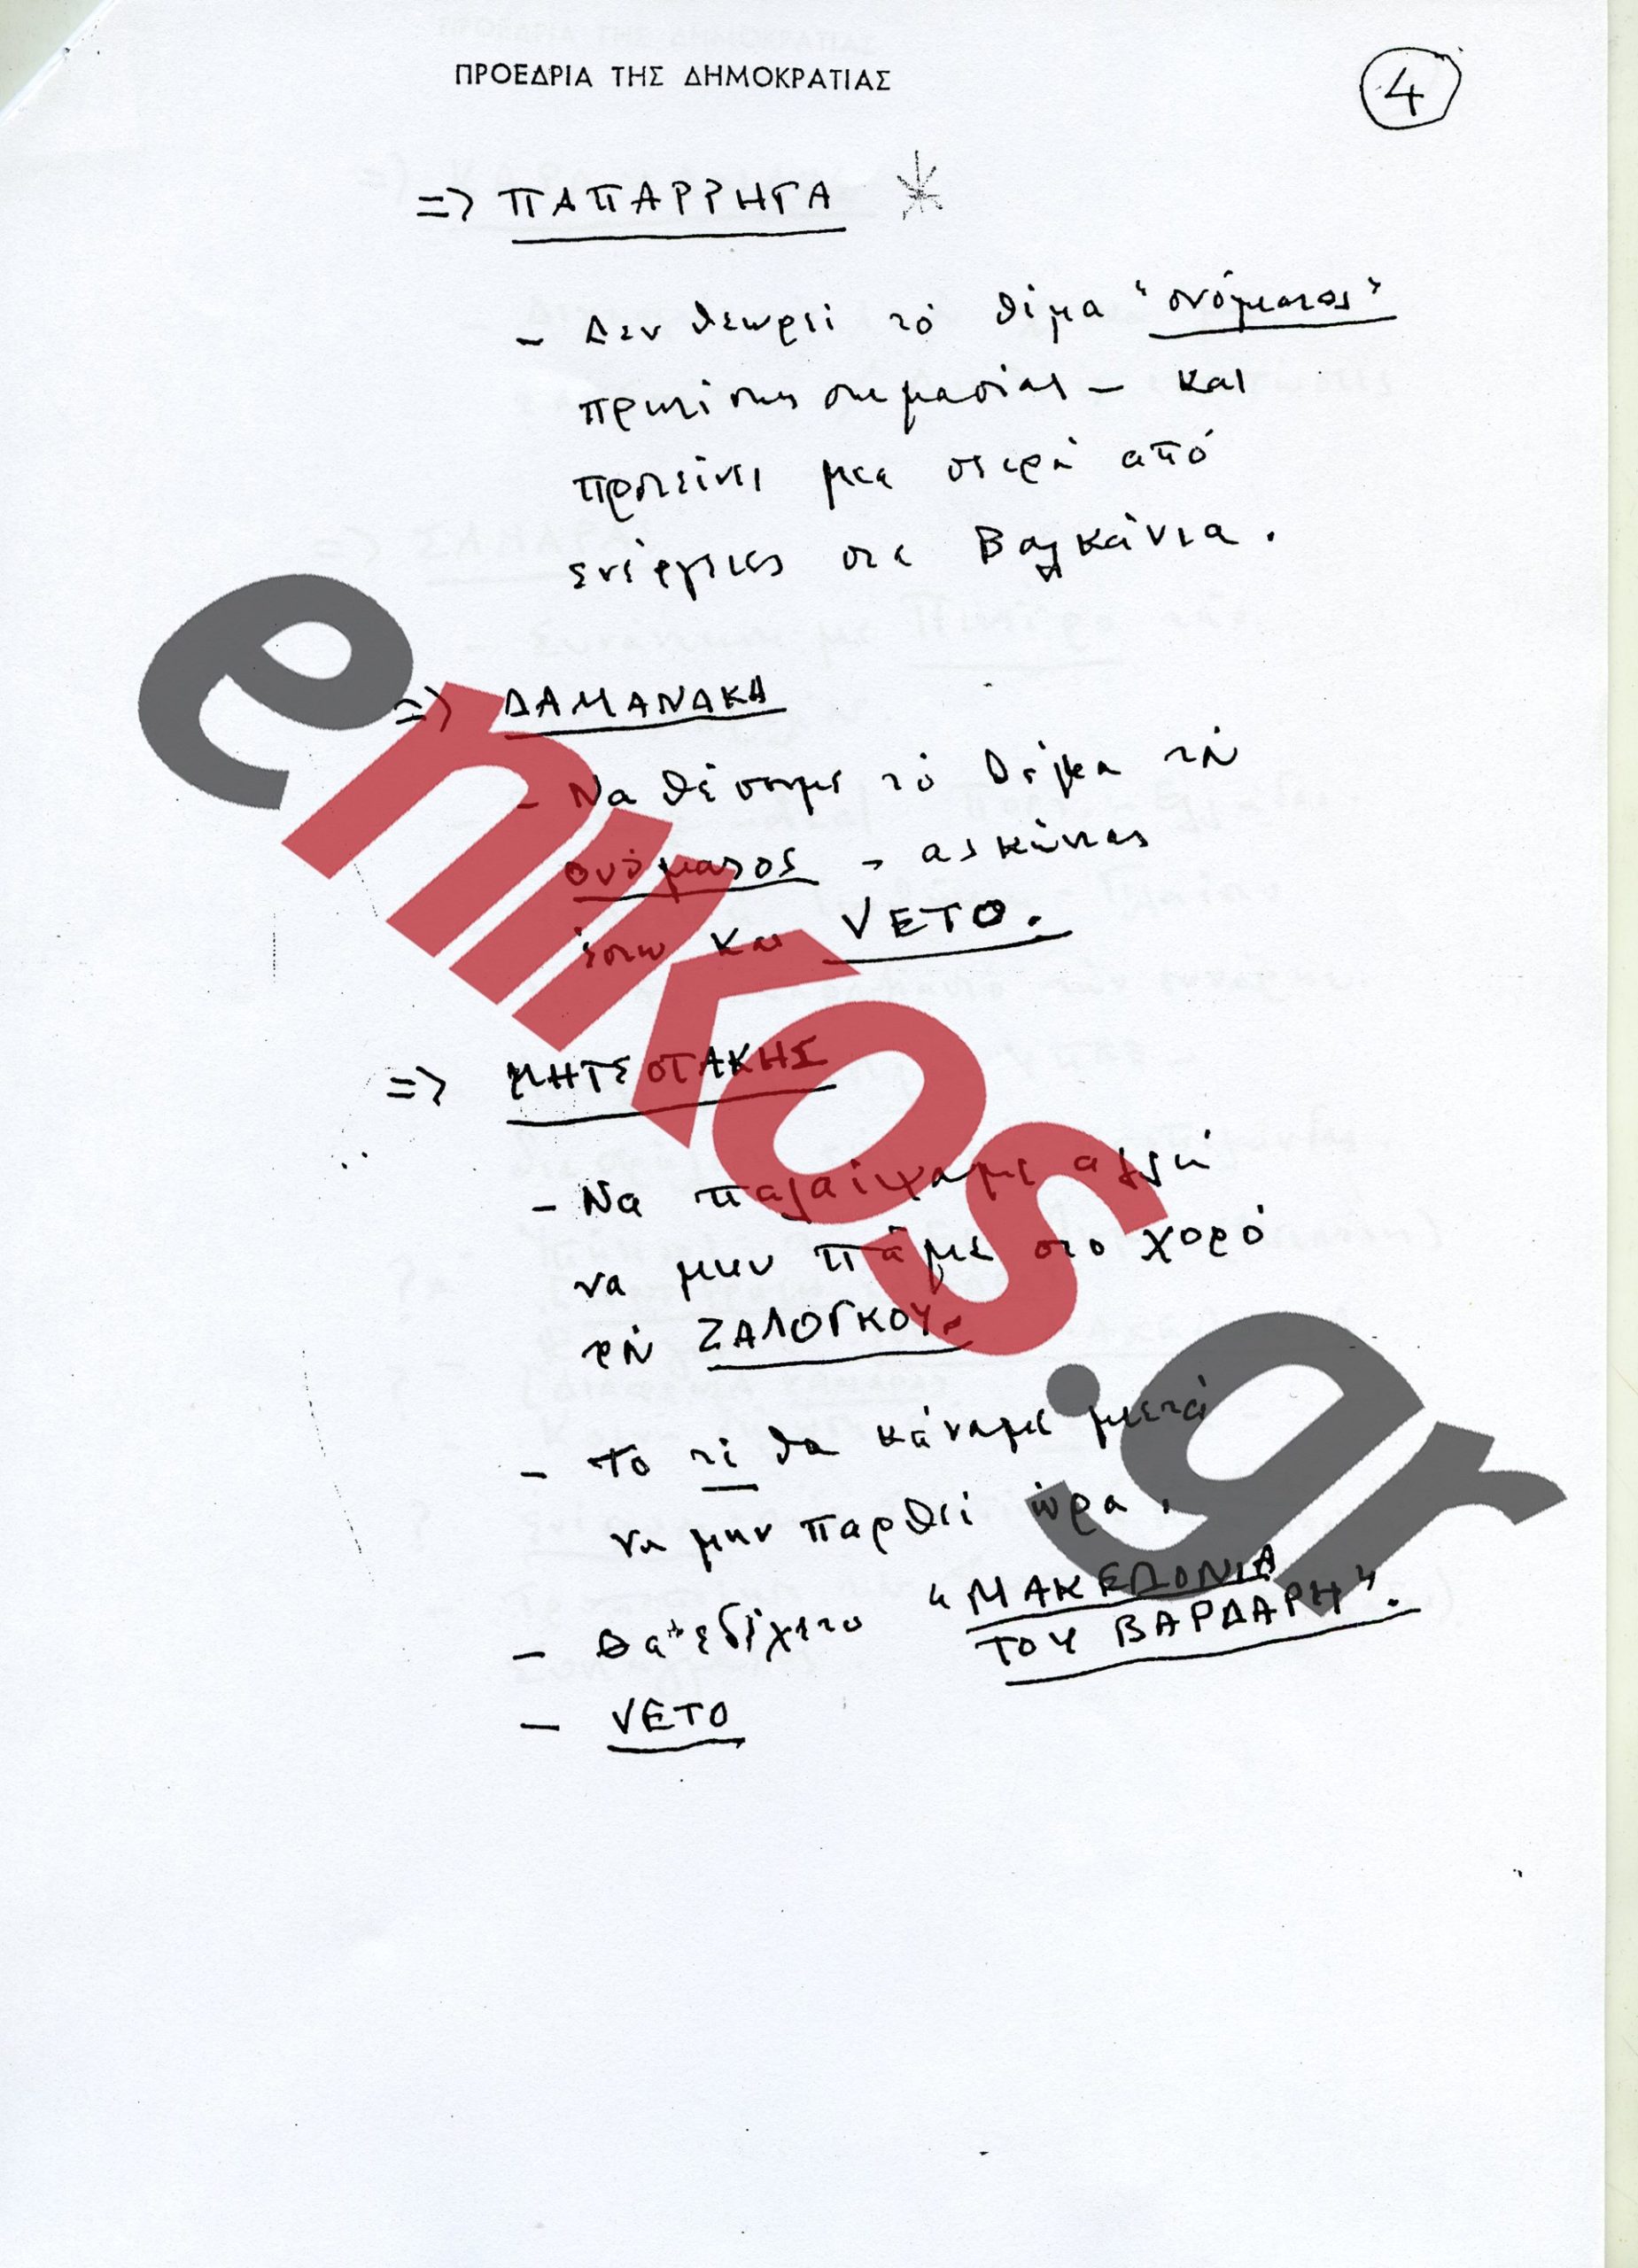 ΠΡΟΕΔΡΙΑ ΤΗΣ ΔΗΜΟΚΡΑΤΙΑΣ
4
=> ΠΑΠΑΡΡΗΓΑ *
- Δεν θεωρεί τό θέμα "ονόματος"
πρωτίστης σημασίας - και
προτείνει μια σειρά από
ενέργειες στα Βαλκάνια.
=> ΔΑΜΑΝΑΚΗ
- Να θέσουμε τό θέμα τού
ονόματος - ασκώντας
έστω και VETO.
=> ΜΗΤΣΟΤΑΚΗΣ
- Να παλαίψαμε αλλά
να μην πάμε στο χορό
τού ΖΑΛΟΓΚΟΥ.
- Το τί θα κάναμε μετά
να μην παρθεί ώρα.
- Θα εδέχετο "ΜΑΚΕΔΟΝΙΑ
ΤΟΥ ΒΑΡΔΑΡΗ".
- VETO
enikos.gr